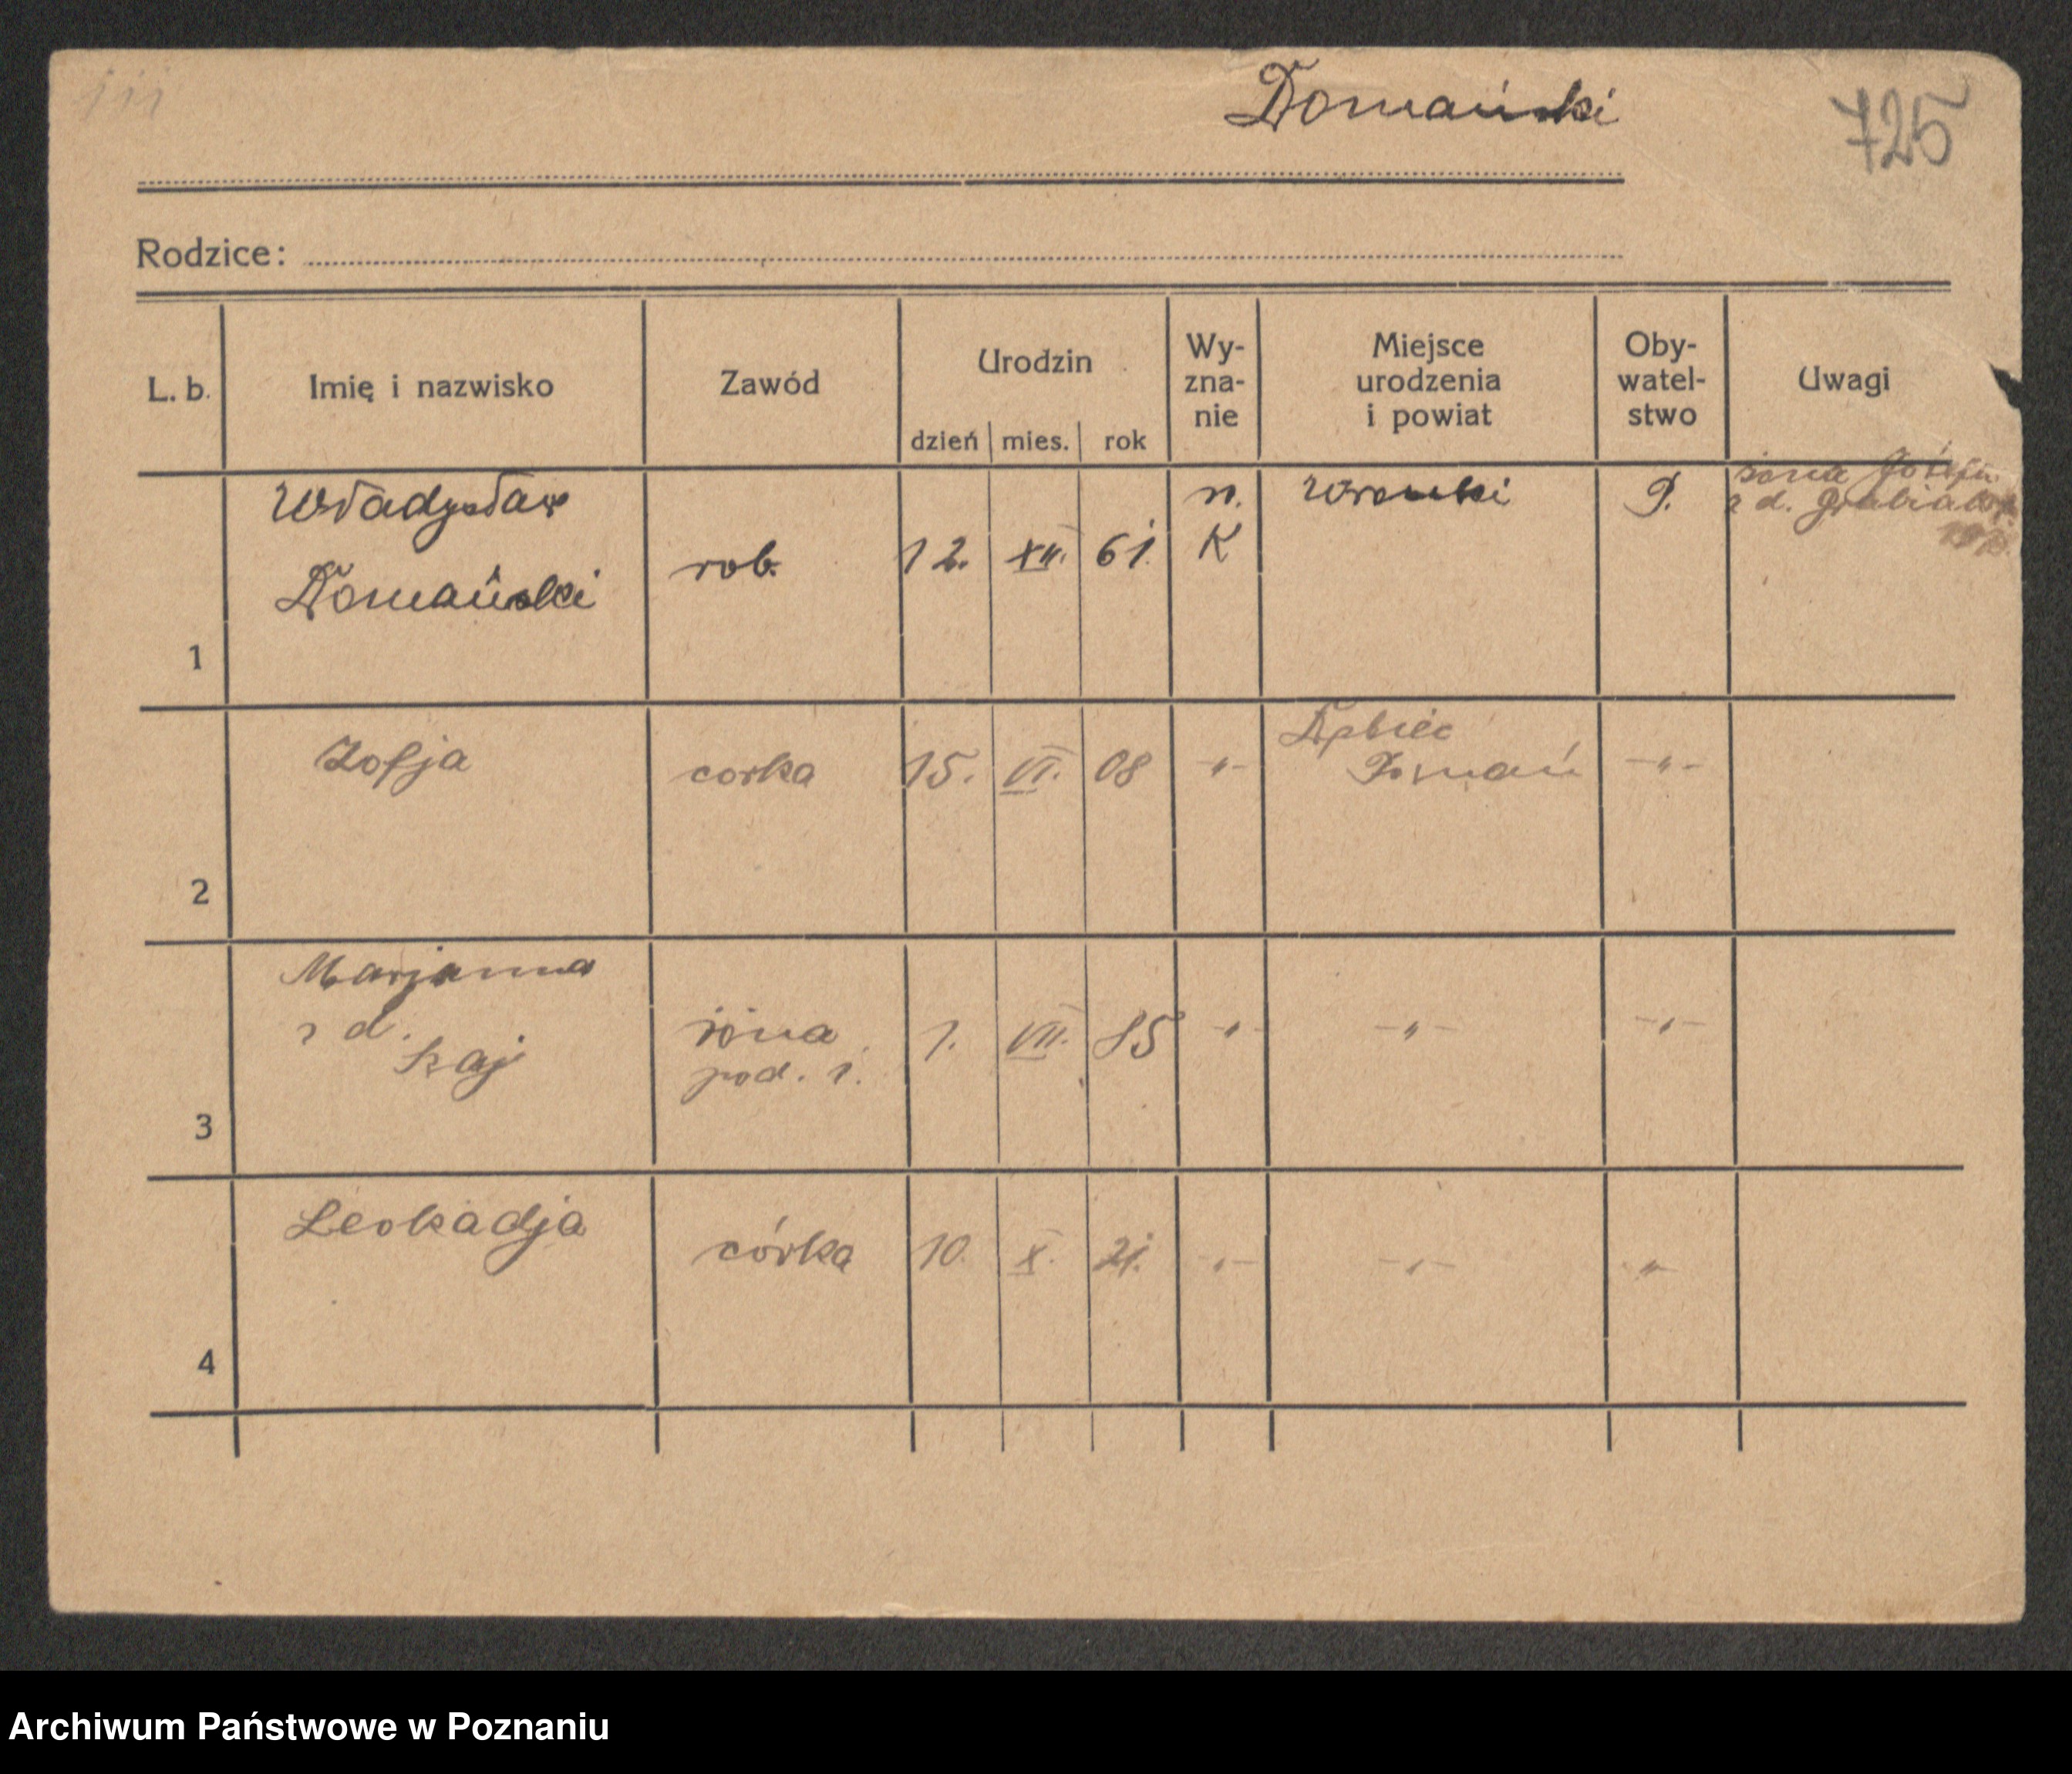 Domański
725
Rodzice:
L. b. Imię i nazwisko Zawód Urodzin dzień mies. rok Wy-zna-nie Miejsce urodzenia i powiat Oby-watel-stwo Uwagi
1 Władysław Domański rob. 12. XII. 61. K Wronki P. żona Józefa z d.
2 Zofja corka 15. VI. 08 -„- Dębiec Poznań -„-
3 Marjanna z d. żona 1. VII. 85 -„- -„- -„-
4 Leokadja córka 10. X. 21. -„- -„- -„-
Archiwum Państwowe w Poznaniu